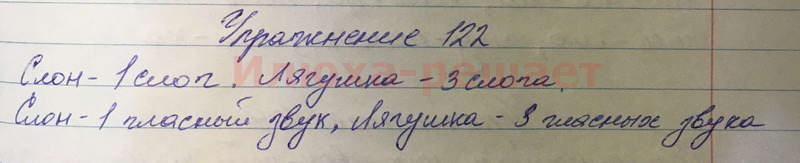 Упражнение 122
Слон - 1 слог. Лягушка - 3 слога.
Илюха-решает
Слон - 1 гласный звук, Лягушка - 3 гласных звука